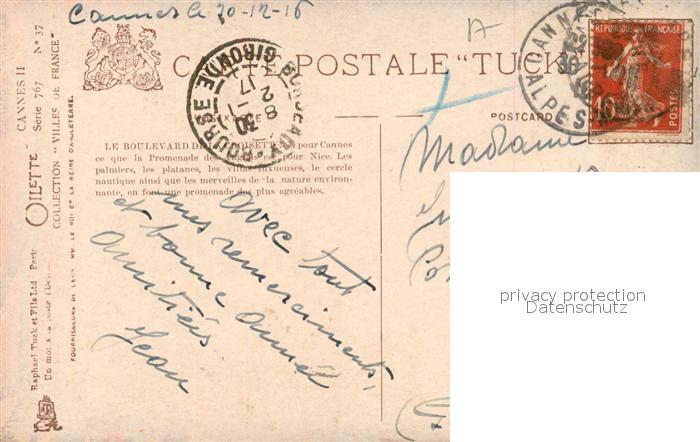 Cannes le 30-12-16
CARTE POSTALE "TUCK"
POSTCARD
CANNES II
OILETTE Série 767 Nº 37
COLLECTION "VILLES DE FRANCE"
Raphael Tuck et Fils Ltd Paris
FOURNISSEURS DE LEUR MM. LE ROI ET LA REINE D'ANGLETERRE.
LE BOULEVARD DE LA CROISETTE est pour Cannes
ce que la Promenade des Anglais est pour Nice. Les
palmiers, les platanes, les villas luxueuses, le cercle
nautique ainsi que les merveilles de la nature environ-
nante, en font une promenade des plus agréables.
BOURSE
GIRONDE
8 -1
2 17
CANNES
ALPES
REPUBLIQUE FRANÇAISE
10
POSTES
Madame
avec tout
mes remerciments,
et bonne année
amitiés
Jean
privacy protection
Datenschutz